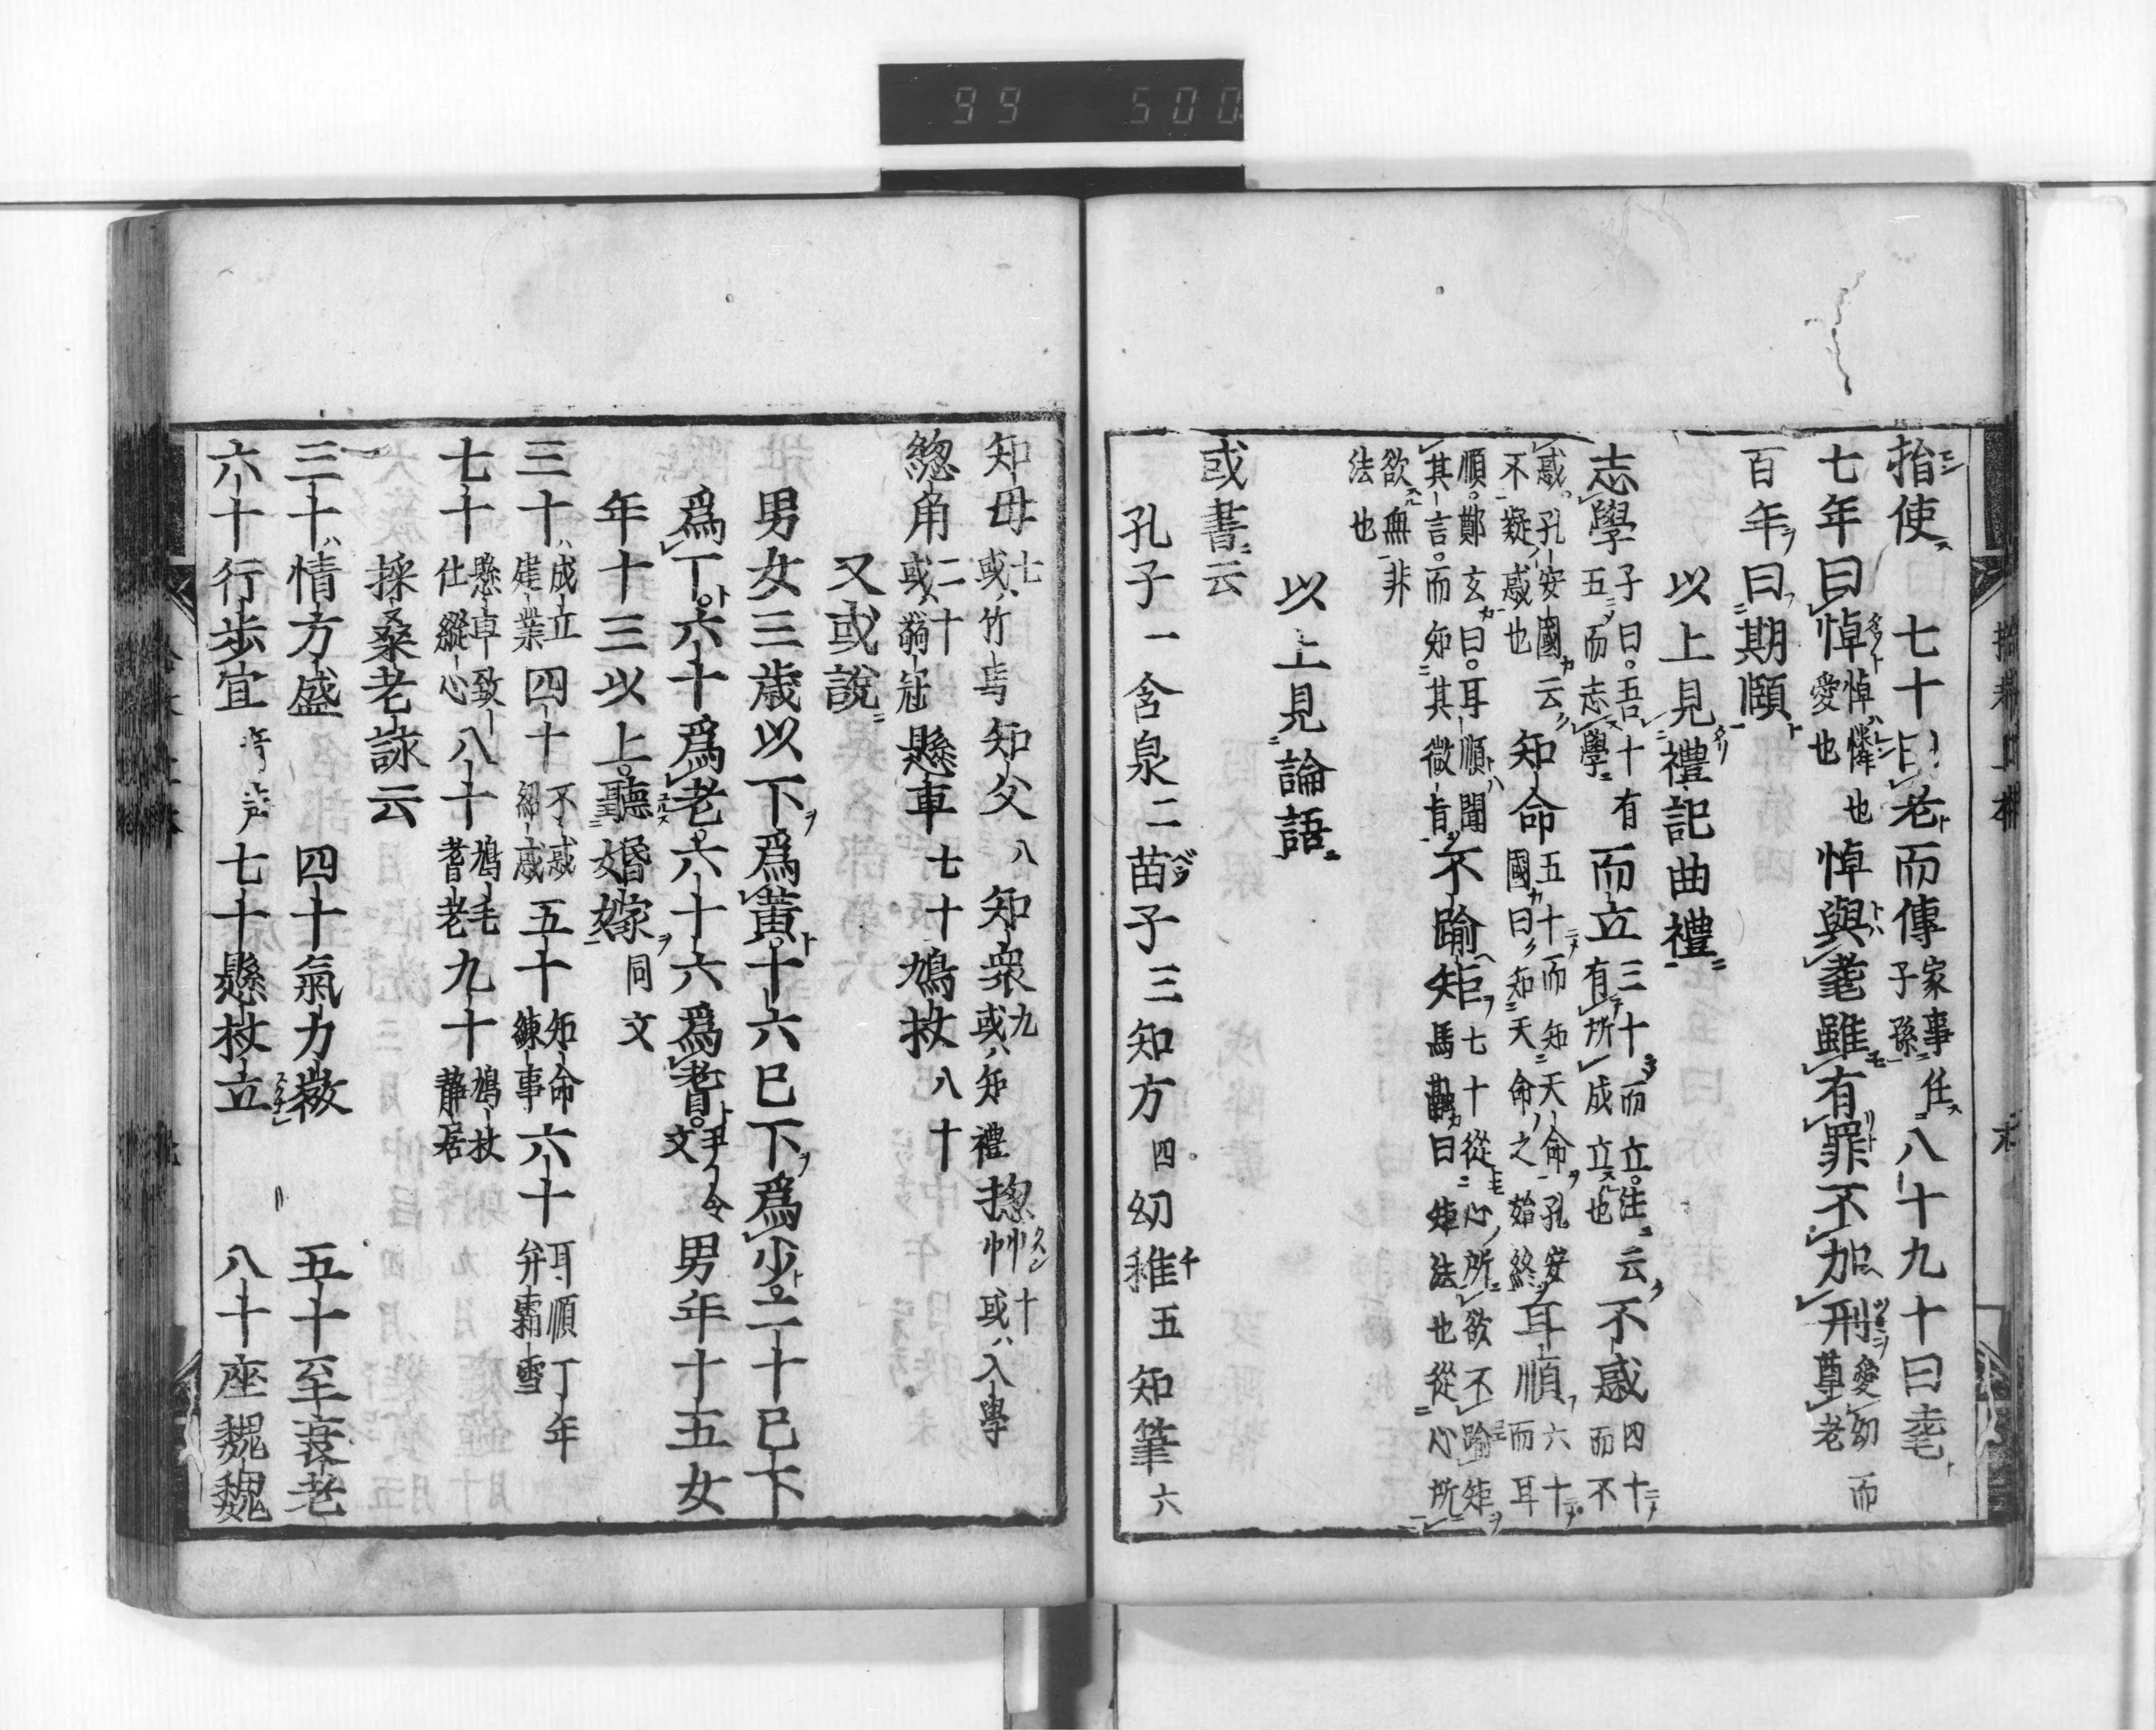 99 500
指使 七十曰老而傳家事任子孫八十九十曰耄
七年曰悼悼憐也愛也悼與耄雖有罪不加刑愛幼而尊老
百年曰期頤
以上見禮記曲禮
志學子曰吾十有五而志學而立三十而立注云有所成立也不惑四十而不
惑孔安國云不疑惑也知命五十而知天命孔安國曰知天命之始終耳順六十而耳
順鄭玄曰耳順聞其言而知其微旨不踰矩七十從心所欲不踰矩馬融曰矩法也從心所
欲無非法也
以上見論語
或書云
孔子一含泉二苗子三知方四幼稚五知筆六
知母七或竹馬知父八知衆九或知禮惣艸十或入學
総角二十或弱冠懸車七十鳩杖八十
又或説
男女三歳以下爲黄十六已下爲少二十已下
爲丁六十爲老六十六爲耆文 男年十五女
年十三以上聽婚嫁同文
三十成立建業四十不惑紹惑五十知命練事六十耳順弁霜雪丁年
七十懸車致仕縱心八十鳩毛耆老九十鳩杖靜居
採桑老詠云
三十情方盛 四十氣力微 五十至衰老
六十行歩宜 七十懸杖立 八十座魏魏